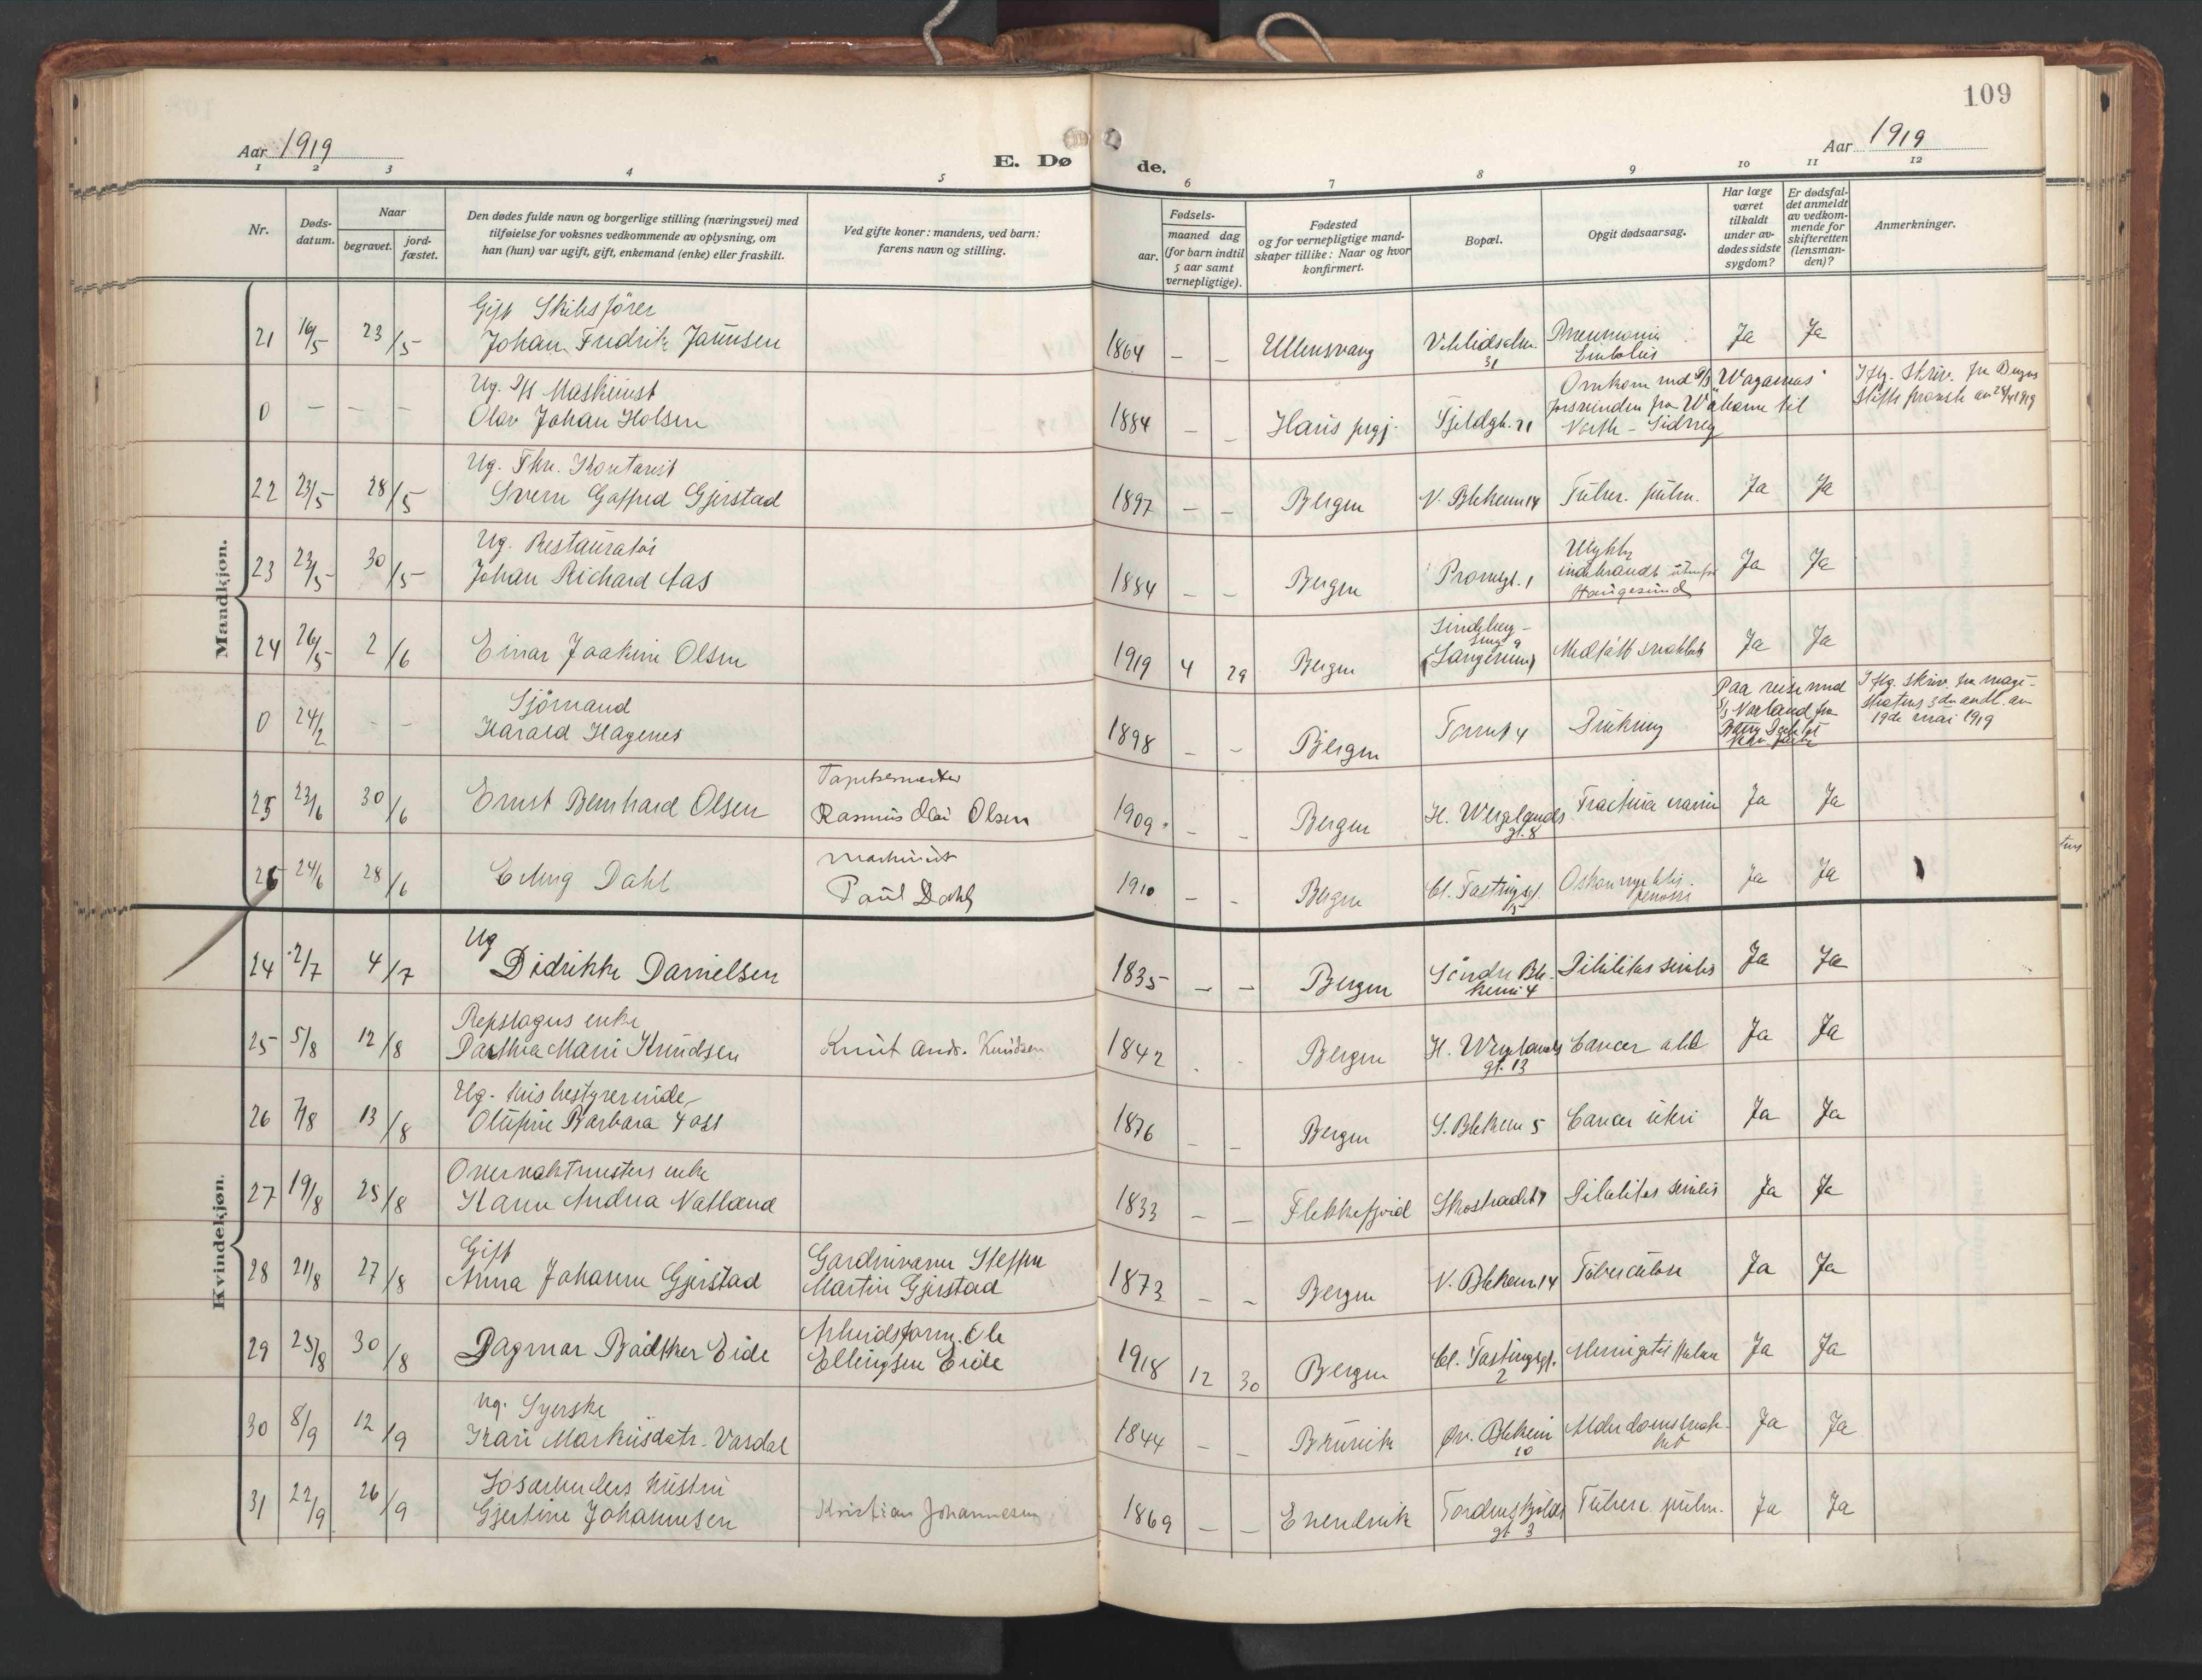 109
Aar 1919
E. Dø
de.
Aar 1919
1 2 3 4 5 6 7 8 9 10 11 12
Nr.
Døds-
datum.
Naar
begravet.
jord-
fæstet.
Den dødes fulde navn og borgerlige stilling (næringsvei) med
tilføielse for voksnes vedkommende av oplysning, om
han (hun) var ugift, gift, enkemand (enke) eller fraskilt.
Ved gifte koner: mandens, ved barn:
farens navn og stilling.
Fødsels-
aar.
maaned dag
(for barn indtil
5 aar samt
vernepligtige).
Fødested
og for vernepligtige mand-
skaper tillike: Naar og hvor
konfirmert.
Bopæl.
Opgit dødsaarsag.
Har læge
været
tilkaldt
under av-
dødes sidste
sygdom?
Er dødsfal-
det anmeldt
av vedkom-
mende for
skifteretten
(lensman-
den)?
Anmerkninger.
Mandkjøn.
Gift Skibsfører
21 16/5 23/5 Johan Fredrik Jaunsen 1864 – – Ullensvang 31 Pneumonia Ja Ja
Embolus
Ug. Maskinist
0 – – – Olav Johan Holsen 1884 – – Haus prgj. Fjeldgt. 21
Omkom med D/S "Wagadus"
forsvinden fra Wabana til
North-Sidney
Iflg. Skriv. fra Bergens
Stiftsprovsti av 28/4 1919
22 23/5 28/5 Gjerstad 1897 – – Bergen N. Blekevei 14 Tuber. pulm. Ja Ja
Ug. Restauratør
23 23/5 30/5 Johan Richard Aas 1884 – – Bergen Promgt. 1 Ja Ja
Ulykke
indebrændt utenfor
Haugesund
24 26/5 2/6 Einar Joakim Olsen 1919 4 29 Bergen Medfødt svakhet Ja Ja
Sjømand
0 24/2 – – Harald Hagenes 1898 – – Bergen Torvet 4 Drukning
Paa reise med
S/S Norland fra
Iflg. skriv. fra magi-
stratens 3die avdl. av
19de mai 1919
Tapetsermester
25 23/6 30/6 Ernst Bernhard Olsen Rasmus Olai Olsen 1909 – – Bergen H. Wergelands Fractura cranii Ja Ja
gt. 8
Maskinist
26 24/6 28/6 Erling Dahl Paul Dahl 1910 – – Bergen Cl. Fastingsgt. Ja Ja
5
Kvindekjøn.
Ug
24 2/7 4/7 Didrikke Danielsen 1835 – – Bergen Søndre Ble- Debilitas senilis Ja Ja
kevei 4
Repslagers enke
25 5/8 12/8 Marie Knudsen Knut Andr. Knudsen 1842 Bergen H. Wergelands Cancer Ja Ja
gt. 13
Ug. husbestyrerinde
26 7/8 13/8 Olufine Barbara Foss 1876 – – Bergen S. Blekevei 5 Cancer uteri Ja Ja
Overvaktmesters enke
27 19/8 25/8 Karen Andrea Natland 1833 – – Flekkefjord Skostrædet Debilitas senilis Ja Ja
Gift Gardinvarer Steffen
28 21/8 27/8 Anna Johanne Gjerstad Martin Gjerstad 1873 – – Bergen N. Blekevei 14 Tuberculose Ja Ja
Arbeidsform. Ole
29 25/8 30/8 Dagmar Bødtker Eide Ellingsen Eide 1918 12 30 Bergen Cl. Fastingsgt. Ja Ja
2
Ug. Syerske
30 8/9 12/9 Kari Markusdatr. Vardal 1844 – – Bruvik Øv. Blekevei Alderdomssvak- Ja Ja
10 het
Losarbeiders hustru
31 22/9 26/9 Gjertine Johannesen Kristian Johannesen 1869 – – Evendvik Tordenskjolds Tuberc. pulm. Ja Ja
gt. 3